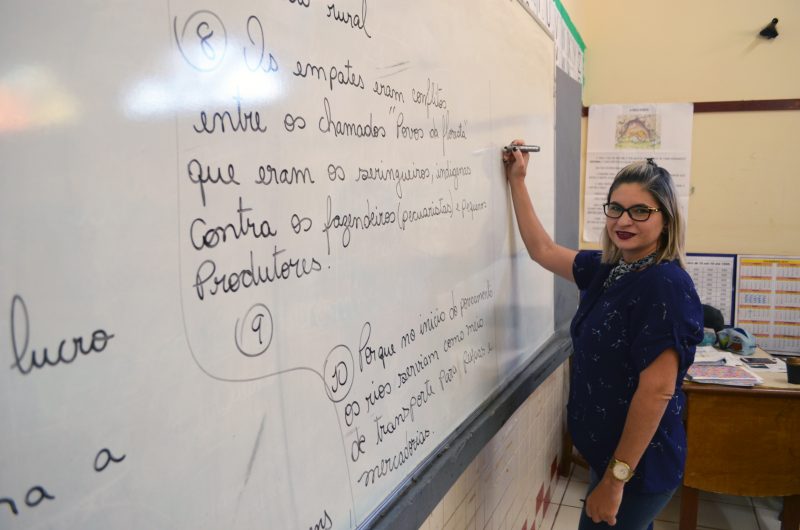 rural
8 Os empates eram conflitos
entre os chamados "Povos da floresta"
que eram os seringueiros, indígenas
contra os fazendeiros (pecuaristas) e pequenos
Produtores.
9
10 Porque no início do povoamento
os rios serviam como meio
de transporte para pessoas e
mercadorias.
lucro
a